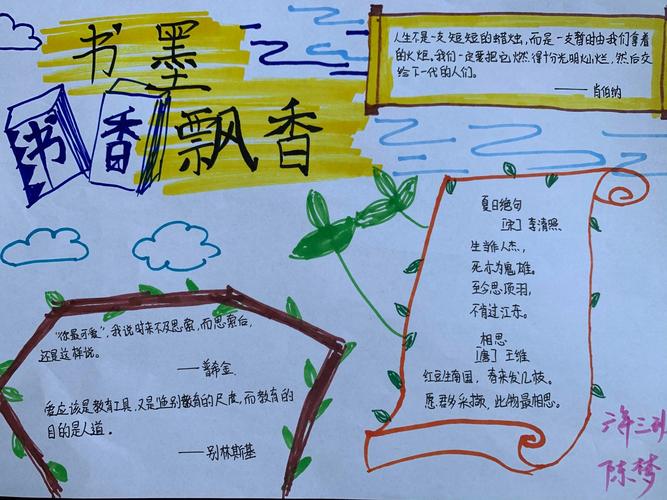 书墨
书香飘香
人生不是一支短短的蜡烛,而是一支暂时由我们拿着
的火炬。我们一定要把它燃得十分光明灿烂,然后交
给下一代的人们。
——肖伯纳
夏日绝句
[宋] 李清照
生当作人杰,
死亦为鬼雄。
至今思项羽,
不肯过江东。
相思
[唐] 王维
红豆生南国,春来发几枝。
愿君多采撷,此物最相思。
"你最可爱",我说时来不及思索,而思索后,
还是这样说。
——普希金
爱应该是教育工具,又是鉴别教育的尺度,而教育的
目的是人道。
——别林斯基
六年三班
陈梦